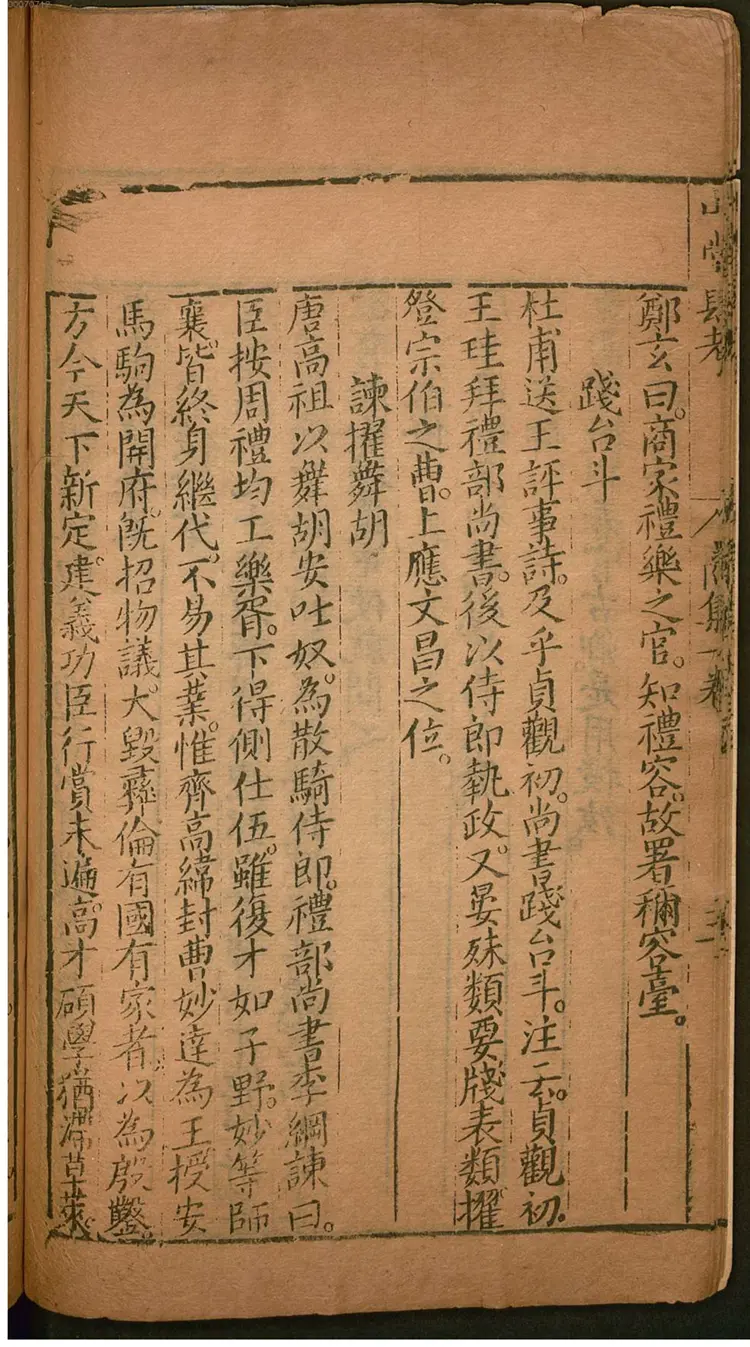 山堂肆考
商集一卷
鄭玄曰。商家禮樂之官。知禮容。故署稱容臺。
踐台斗
杜甫送王評事詩。及乎貞觀初。尚書踐台斗。注云。貞觀初。
王珪拜禮部尚書。後以侍郎執政。又晏殊類要牋表類擢
登宗伯之曹。上應文昌之位。
諫擢舞胡
唐高祖以舞胡安叱奴。為散騎侍郎。禮部尚書李綱諫曰。
臣按周禮均工樂胥。下得側仕伍。雖復才如子野。妙等師
襄。皆終身繼代。不易其業。惟齊高緯封曹妙達為王授安
馬駒為開府。旣招物議。大毀彞倫有國有家者。以為殷鑿。
方今天下新定。建義功臣行賞未遍。高才碩學猶滯草萊。